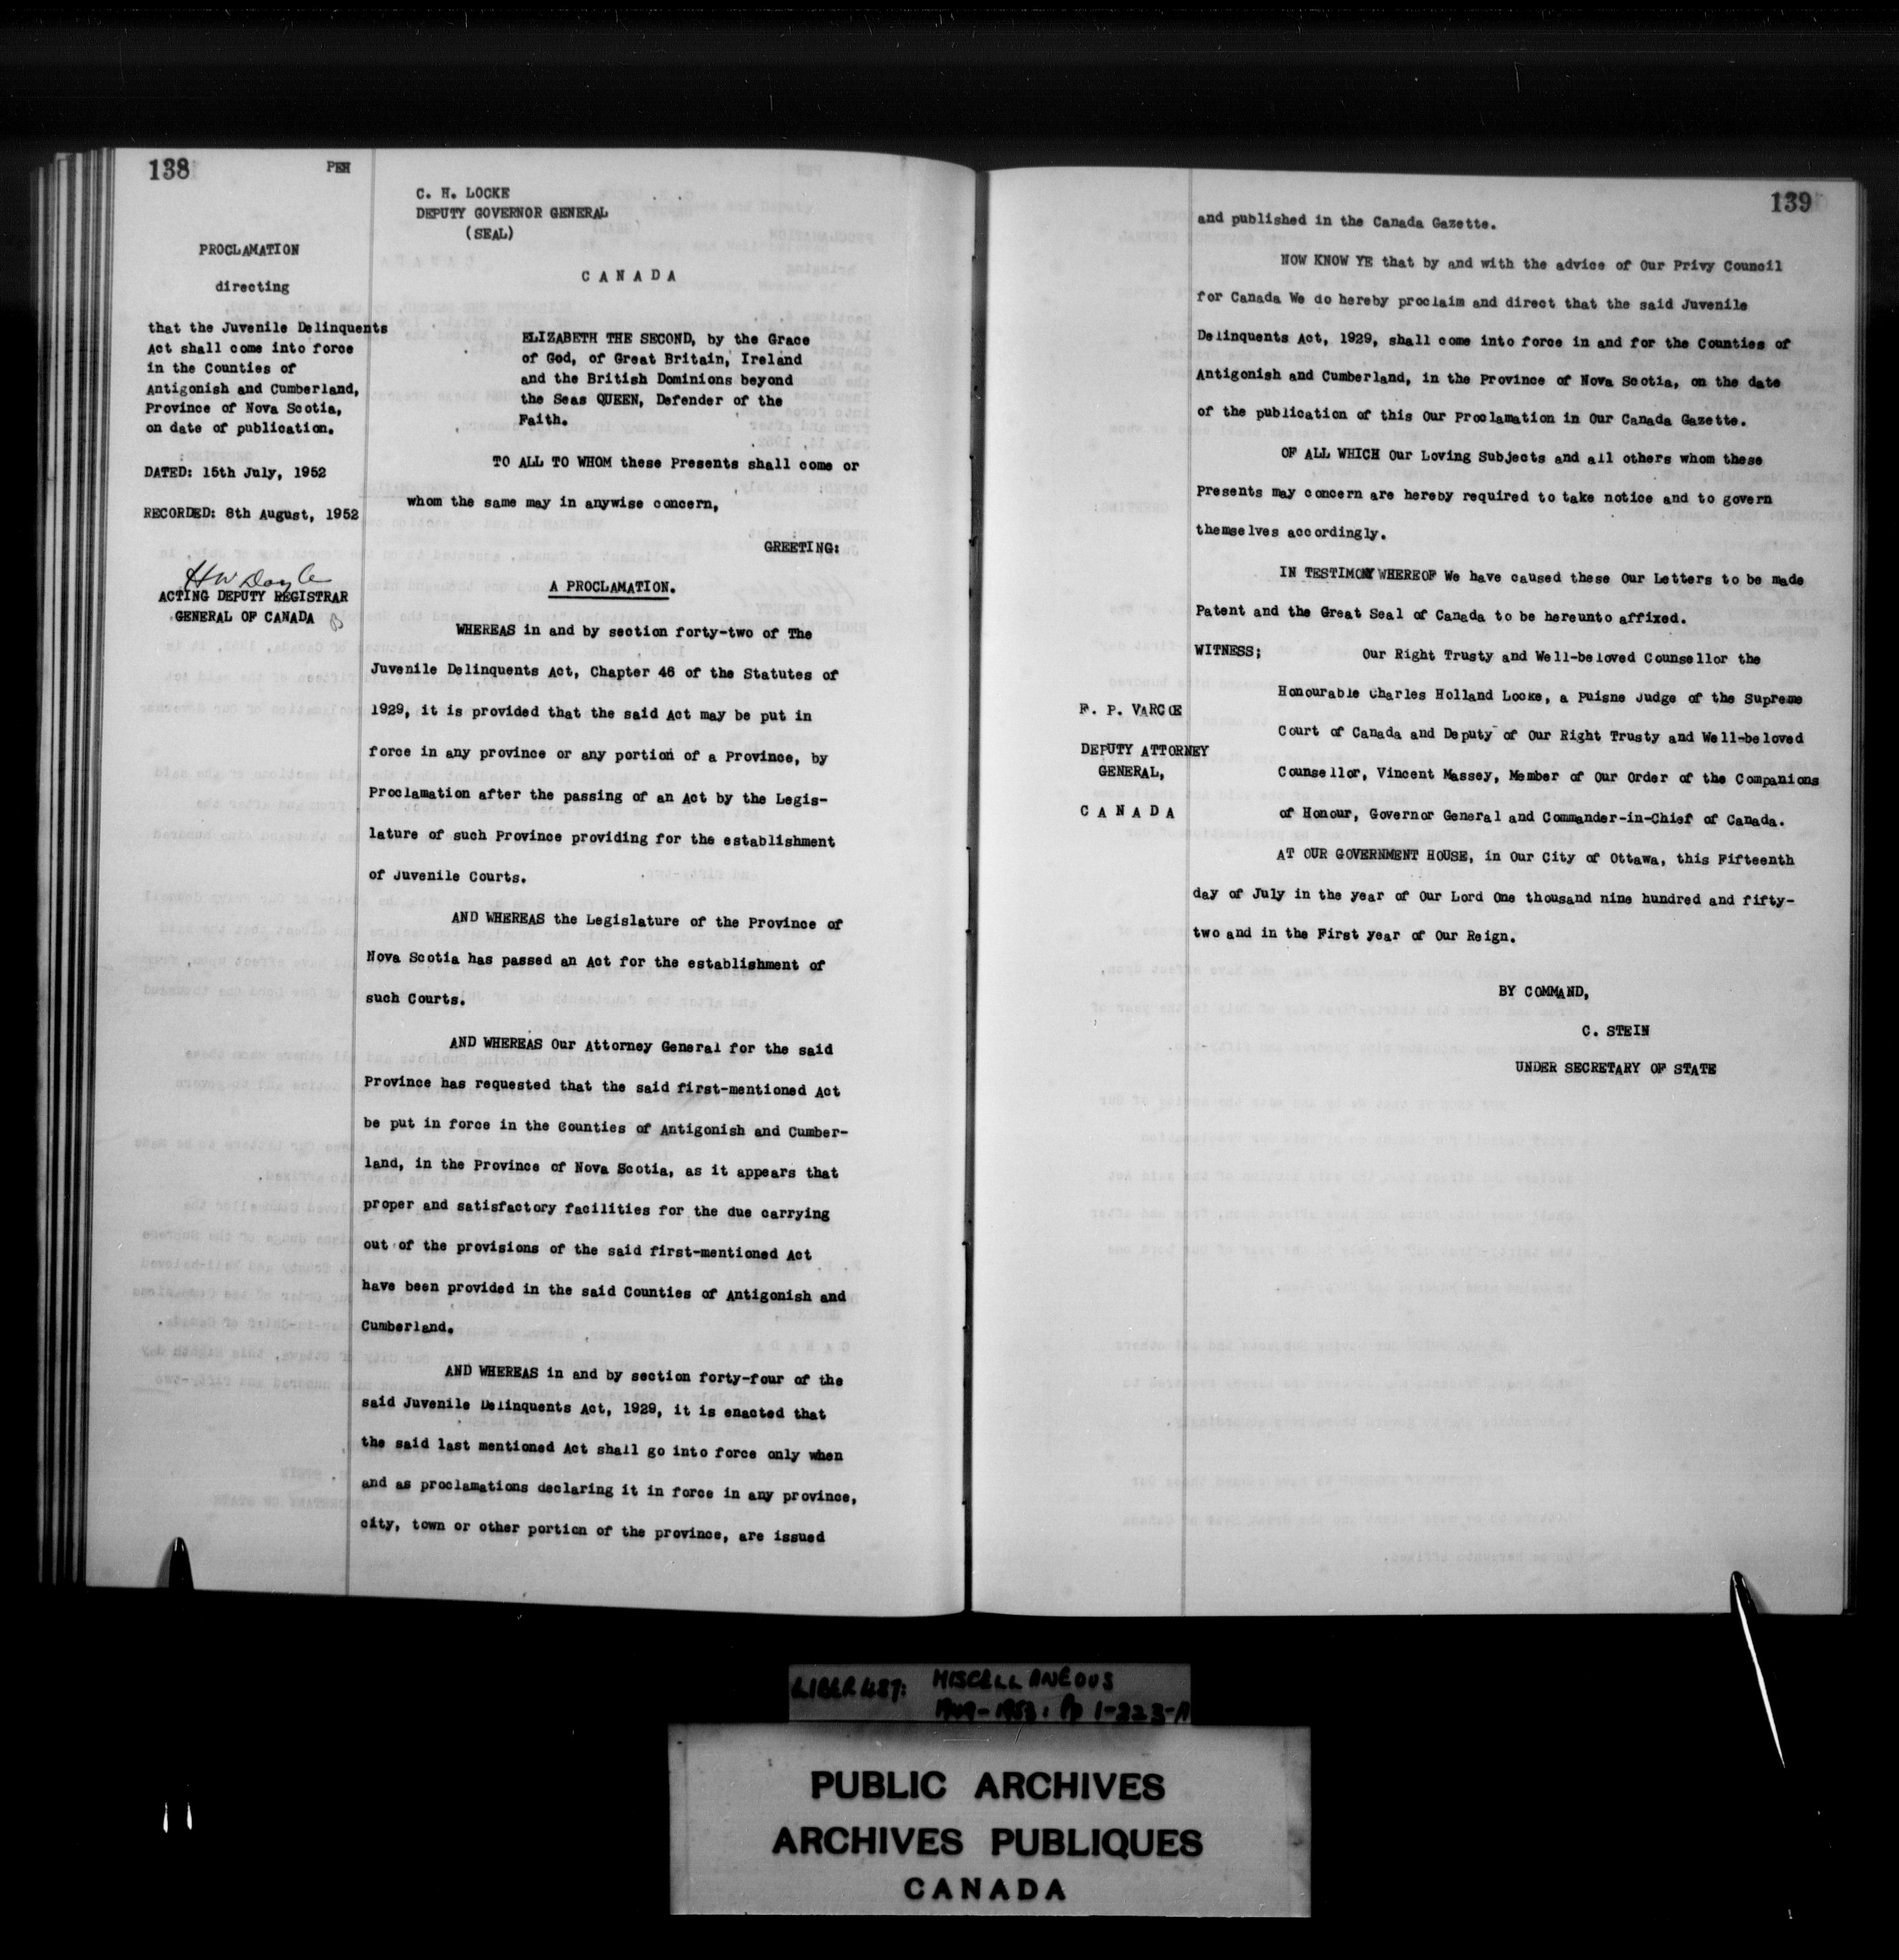 138
PEH
PROCLAMATION
directing
that the Juvenile Delinquents
Act shall come into force
in the Counties of
Antigonish and Cumberland,
Province of Nova Scotia,
on date of publication.
DATED: 15th July, 1952
RECORDED: 8th August, 1952
HW Doyle
ACTING DEPUTY REGISTRAR
GENERAL OF CANADA
C. H. LOCKE
DEPUTY GOVERNOR GENERAL
(SEAL)
C A N A D A
ELIZABETH THE SECOND, by the Grace
of God, of Great Britain, Ireland
and the British Dominions beyond
the Seas QUEEN, Defender of the
Faith.
TO ALL TO WHOM these Presents shall come or
whom the same may in anywise concern,
GREETING:
A PROCLAMATION.
WHEREAS in and by section forty-two of The
Juvenile Delinquents Act, Chapter 46 of the Statutes of
1929, it is provided that the said Act may be put in
force in any province or any portion of a Province, by
Proclamation after the passing of an Act by the Legis-
lature of such Province providing for the establishment
of Juvenile Courts.
AND WHEREAS the Legislature of the Province of
Nova Scotia has passed an Act for the establishment of
such Courts.
AND WHEREAS Our Attorney General for the said
Province has requested that the said first-mentioned Act
be put in force in the Counties of Antigonish and Cumber-
land, in the Province of Nova Scotia, as it appears that
proper and satisfactory facilities for the due carrying
out of the provisions of the said first-mentioned Act
have been provided in the said Counties of Antigonish and
Cumberland.
AND WHEREAS in and by section forty-four of the
said Juvenile Delinquents Act, 1929, it is enacted that
the said last mentioned Act shall go into force only when
and as proclamations declaring it in force in any province,
city, town or other portion of the province, are issued
139
and published in the Canada Gazette.
NOW KNOW YE that by and with the advice of Our Privy Council
for Canada We do hereby proclaim and direct that the said Juvenile
Delinquents Act, 1929, shall come into force in and for the Counties of
Antigonish and Cumberland, in the Province of Nova Scotia, on the date
of the publication of this Our Proclamation in Our Canada Gazette.
OF ALL WHICH Our Loving Subjects and all others whom these
Presents may concern are hereby required to take notice and to govern
themselves accordingly.
IN TESTIMONY WHEREOF We have caused these Our Letters to be made
Patent and the Great Seal of Canada to be hereunto affixed.
WITNESS; Our Right Trusty and Well-beloved Counsellor the
Honourable Charles Holland Locke, a Puisne Judge of the Supreme
Court of Canada and Deputy of Our Right Trusty and Well-beloved
Counsellor, Vincent Massey, Member of Our Order of the Companions
of Honour, Governor General and Commander-in-Chief of Canada.
F. P. VARCOE
DEPUTY ATTORNEY
GENERAL,
C A N A D A
AT OUR GOVERNMENT HOUSE, in Our City of Ottawa, this Fifteenth
day of July in the year of Our Lord One thousand nine hundred and fifty-
two and in the First year of Our Reign.
BY COMMAND,
C. STEIN
UNDER SECRETARY OF STATE
LIBER 487: MISCELLANEOUS
1949-1953: Pp 1-223-A
PUBLIC ARCHIVES
ARCHIVES PUBLIQUES
CANADA